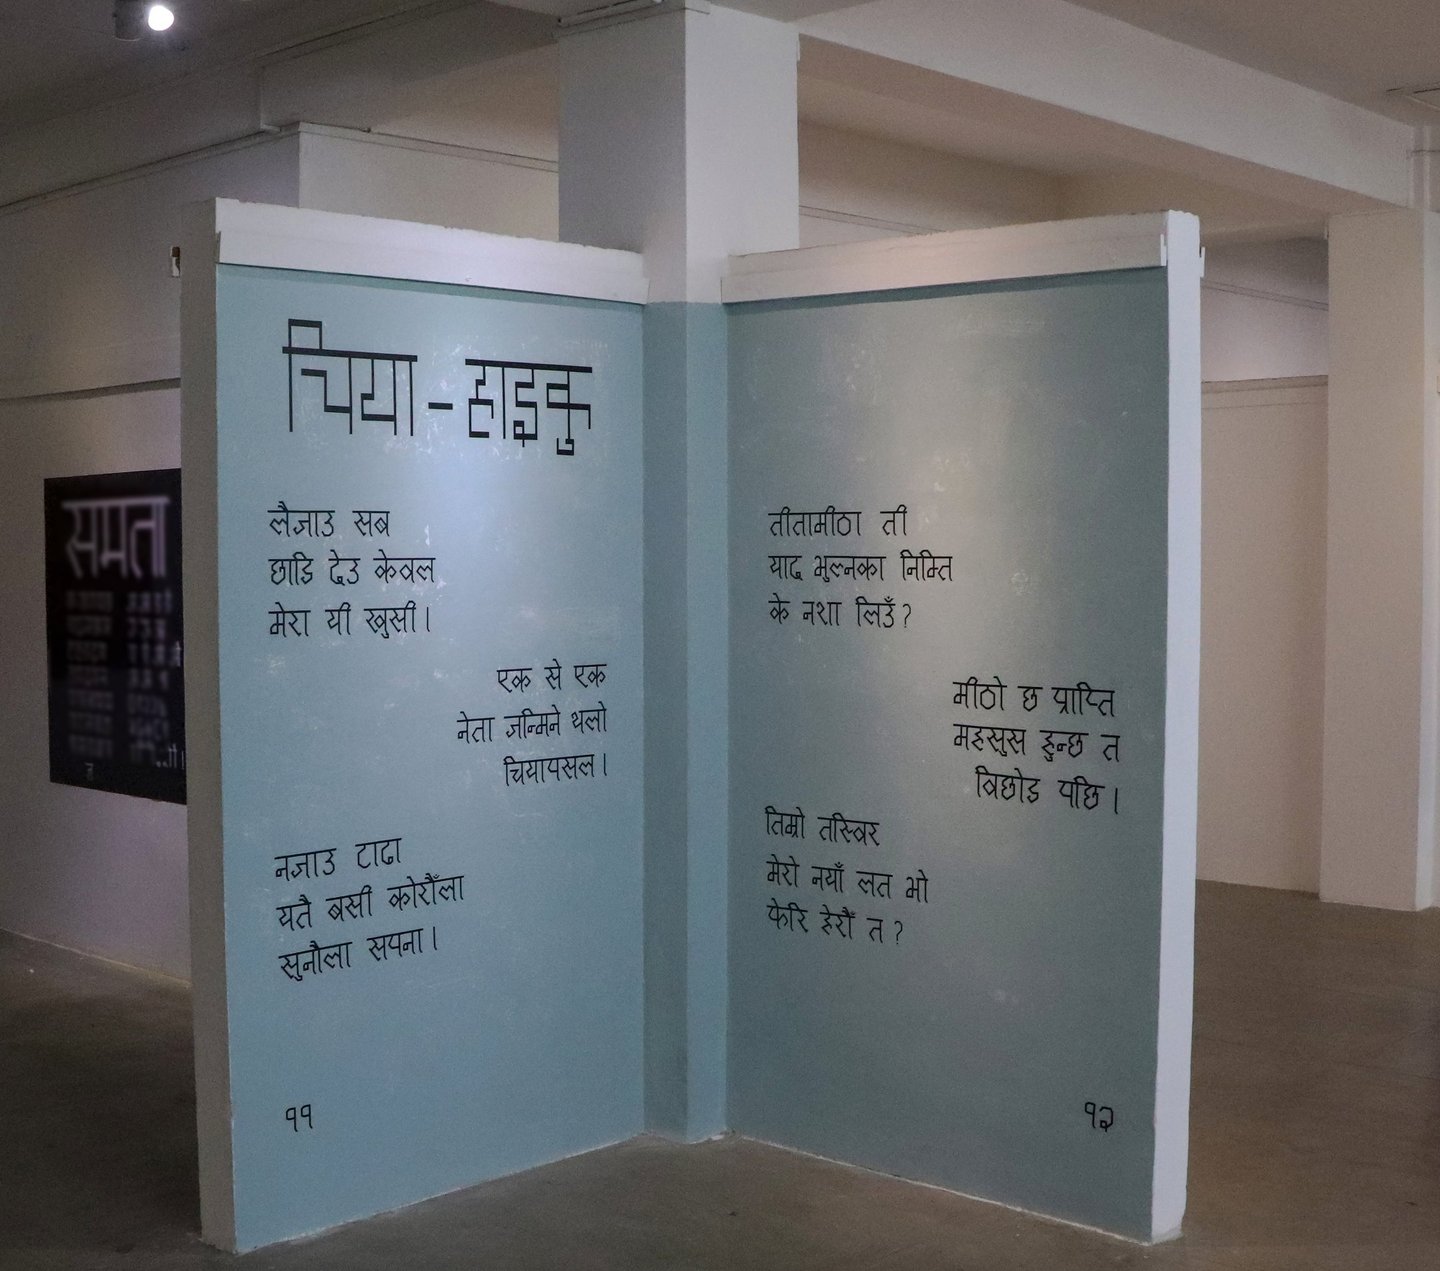 चिया - हाइकु
लैजाउ सब
छाडि देउ केवल
मेरा यी खुसी।
एक से एक
नेता जन्मिने थलो
चियापसल।
नजाउ टाढा
यतै बसी कोरौँला
सुनौला सपना।
११
तीतामीठा ती
याद भुल्नका निम्ति
के नशा लिउँ?
मीठो छ प्राप्ति
महसुस हुन्छ त
विछोड पछि।
तिम्रो तस्विर
मेरो नयाँ लत भो
फेरि हेरौँ त?
१२
समता